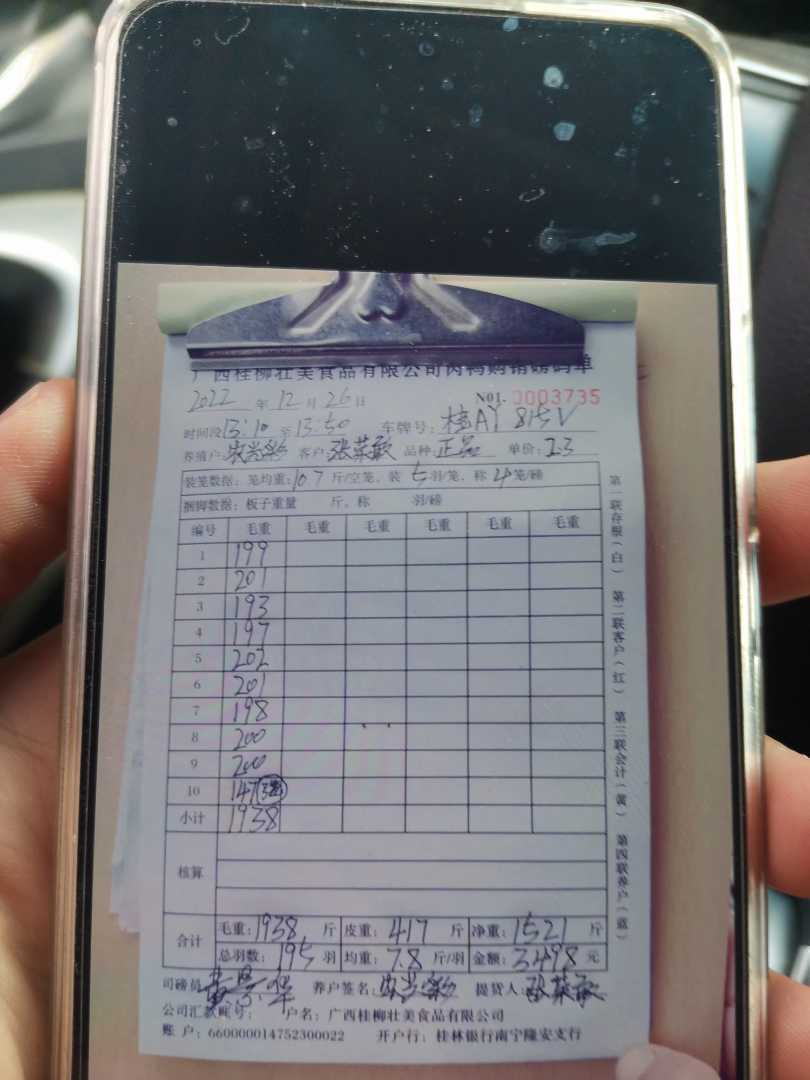 广西桂柳壮美食品有限公司肉鸭购销磅码单
2022 年 12 月 26 日 NO1. 0003735
时间段 13:10 至 13:50 车牌号: 桂AY 815V
养殖户: 客户: 张荣敏 品种: 正品 单价: 7.3
装笼数据: 笼均重: 10.7 斤/空笼, 装 5 羽/笼, 称 4 笼/磅
捆脚数据: 板子重量 斤, 称 羽/磅
编号 毛重 毛重 毛重 毛重 毛重 毛重
1 199
2 201
3 193
4 197
5 202
6 201
7 198
8 200
9 200
10 147
小计 1938
核算
合计 毛重: 1938 斤 皮重: 417 斤 净重: 1521 斤
总羽数: 195 羽 均重: 7.8 斤/羽 金额: 3498 元
司磅员 养户签名: 提货人: 张荣敏
公司汇款账号: 户名: 广西桂柳壮美食品有限公司
账 户: 660000014752300022 开户行: 桂林银行南宁隆安支行
第一联存根(白)
第二联客户(红)
第三联会计(黄)
第四联养户(蓝)